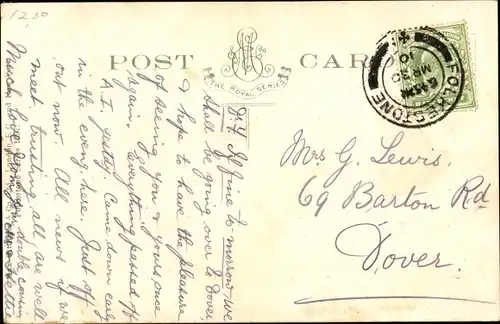 12,50
POST CARD
THE ROYAL SERIES
FOLKESTONE
6.45 PM
MR 30
10
Dr. F If fine to morrow we
shall be going over to Dover,
& hope to have the pleasure
of seeing you & yours once
again. Everything passed off
A.I. yestdy. Came down early
in the eveng. here. Just off
out now. All news if we
meet trusting all are well
Much love from your double cousin
Mrs G. Lewis.
69 Barton Rd
Dover.